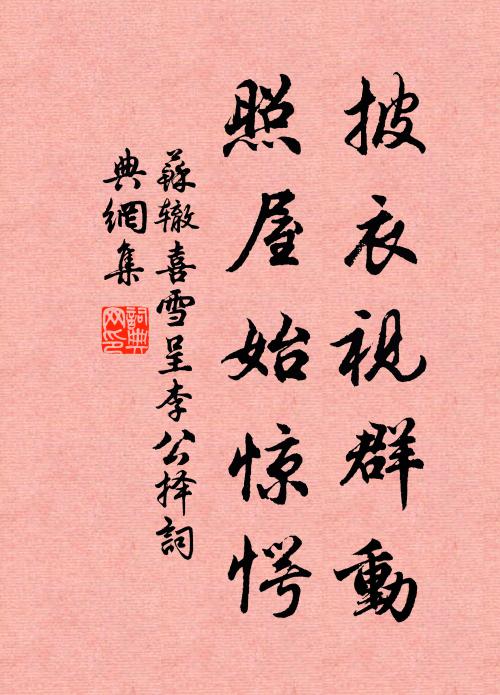 披衣視群動
照屋始惊愕
蘇辙喜雪呈李公择詞
典網集
詞典网印